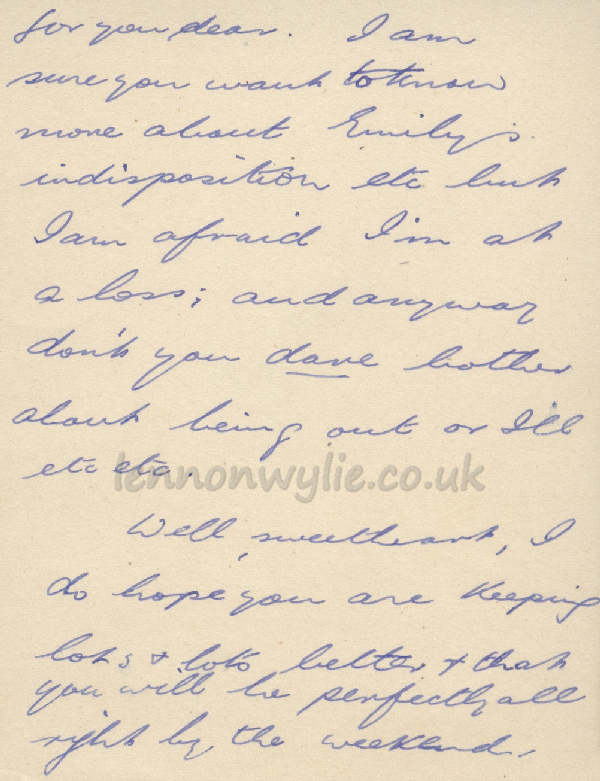 for you dear. I am
sure you want to know
more about Emily's
indisposition etc but
I am afraid I'm at
a loss; and anyway
don't you dare bother
about being out or I'll
etc etc.
lennonwylie.co.uk
Well, sweetheart, I
do hope you are keeping
lots & lots better & that
you will be perfectly all
right by the weekend.